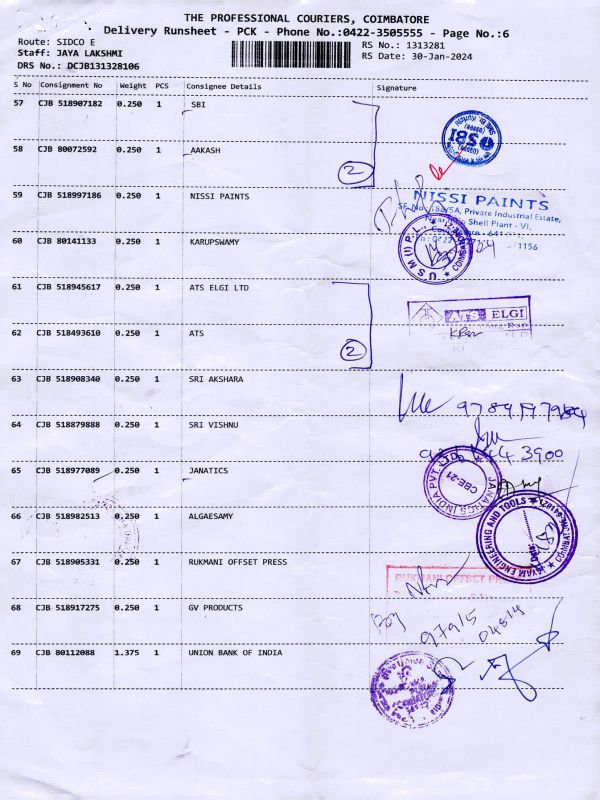 THE PROFESSIONAL COURIERS, COIMBATORE
Delivery Runsheet - PCK - Phone No.:0422-3505555 - Page No.:6
Route: SIDCO E
RS No.: 1313281
Staff: JAYA LAKSHMI
RS Date: 30-Jan-2024
DRS No.: DCJB131328106
S No Consignment No Weight PCS Consignee Details Signature
57 CJB 518907182 0.250 1 SBI
SBI
58 CJB 80072592 0.250 1 AAKASH
2
59 CJB 518997186 0.250 1 NISSI PAINTS
NISSI PAINTS
Private Industrial Estate,
Shell Plant - VI,
60 CJB 80141133 0.250 1 KARUPSWAMY
61 CJB 518945617 0.250 1 ATS ELGI LTD
ATS ELGI
62 CJB 518493610 0.250 1 ATS
2
63 CJB 518908340 0.250 1 SRI AKSHARA
64 CJB 518879888 0.250 1 SRI VISHNU
65 CJB 518977089 0.250 1 JANATICS
JANATICS INDIA PVT. LTD.
CBE-21
66 CJB 518982513 0.250 1 ALGAESAMY
JAYAM ENGINEERING AND TOOLS
67 CJB 518905331 0.250 1 RUKMANI OFFSET PRESS
RUKMANI OFFSET
68 CJB 518917275 0.250 1 GV PRODUCTS
97915
04814
69 CJB 80112088 1.375 1 UNION BANK OF INDIA